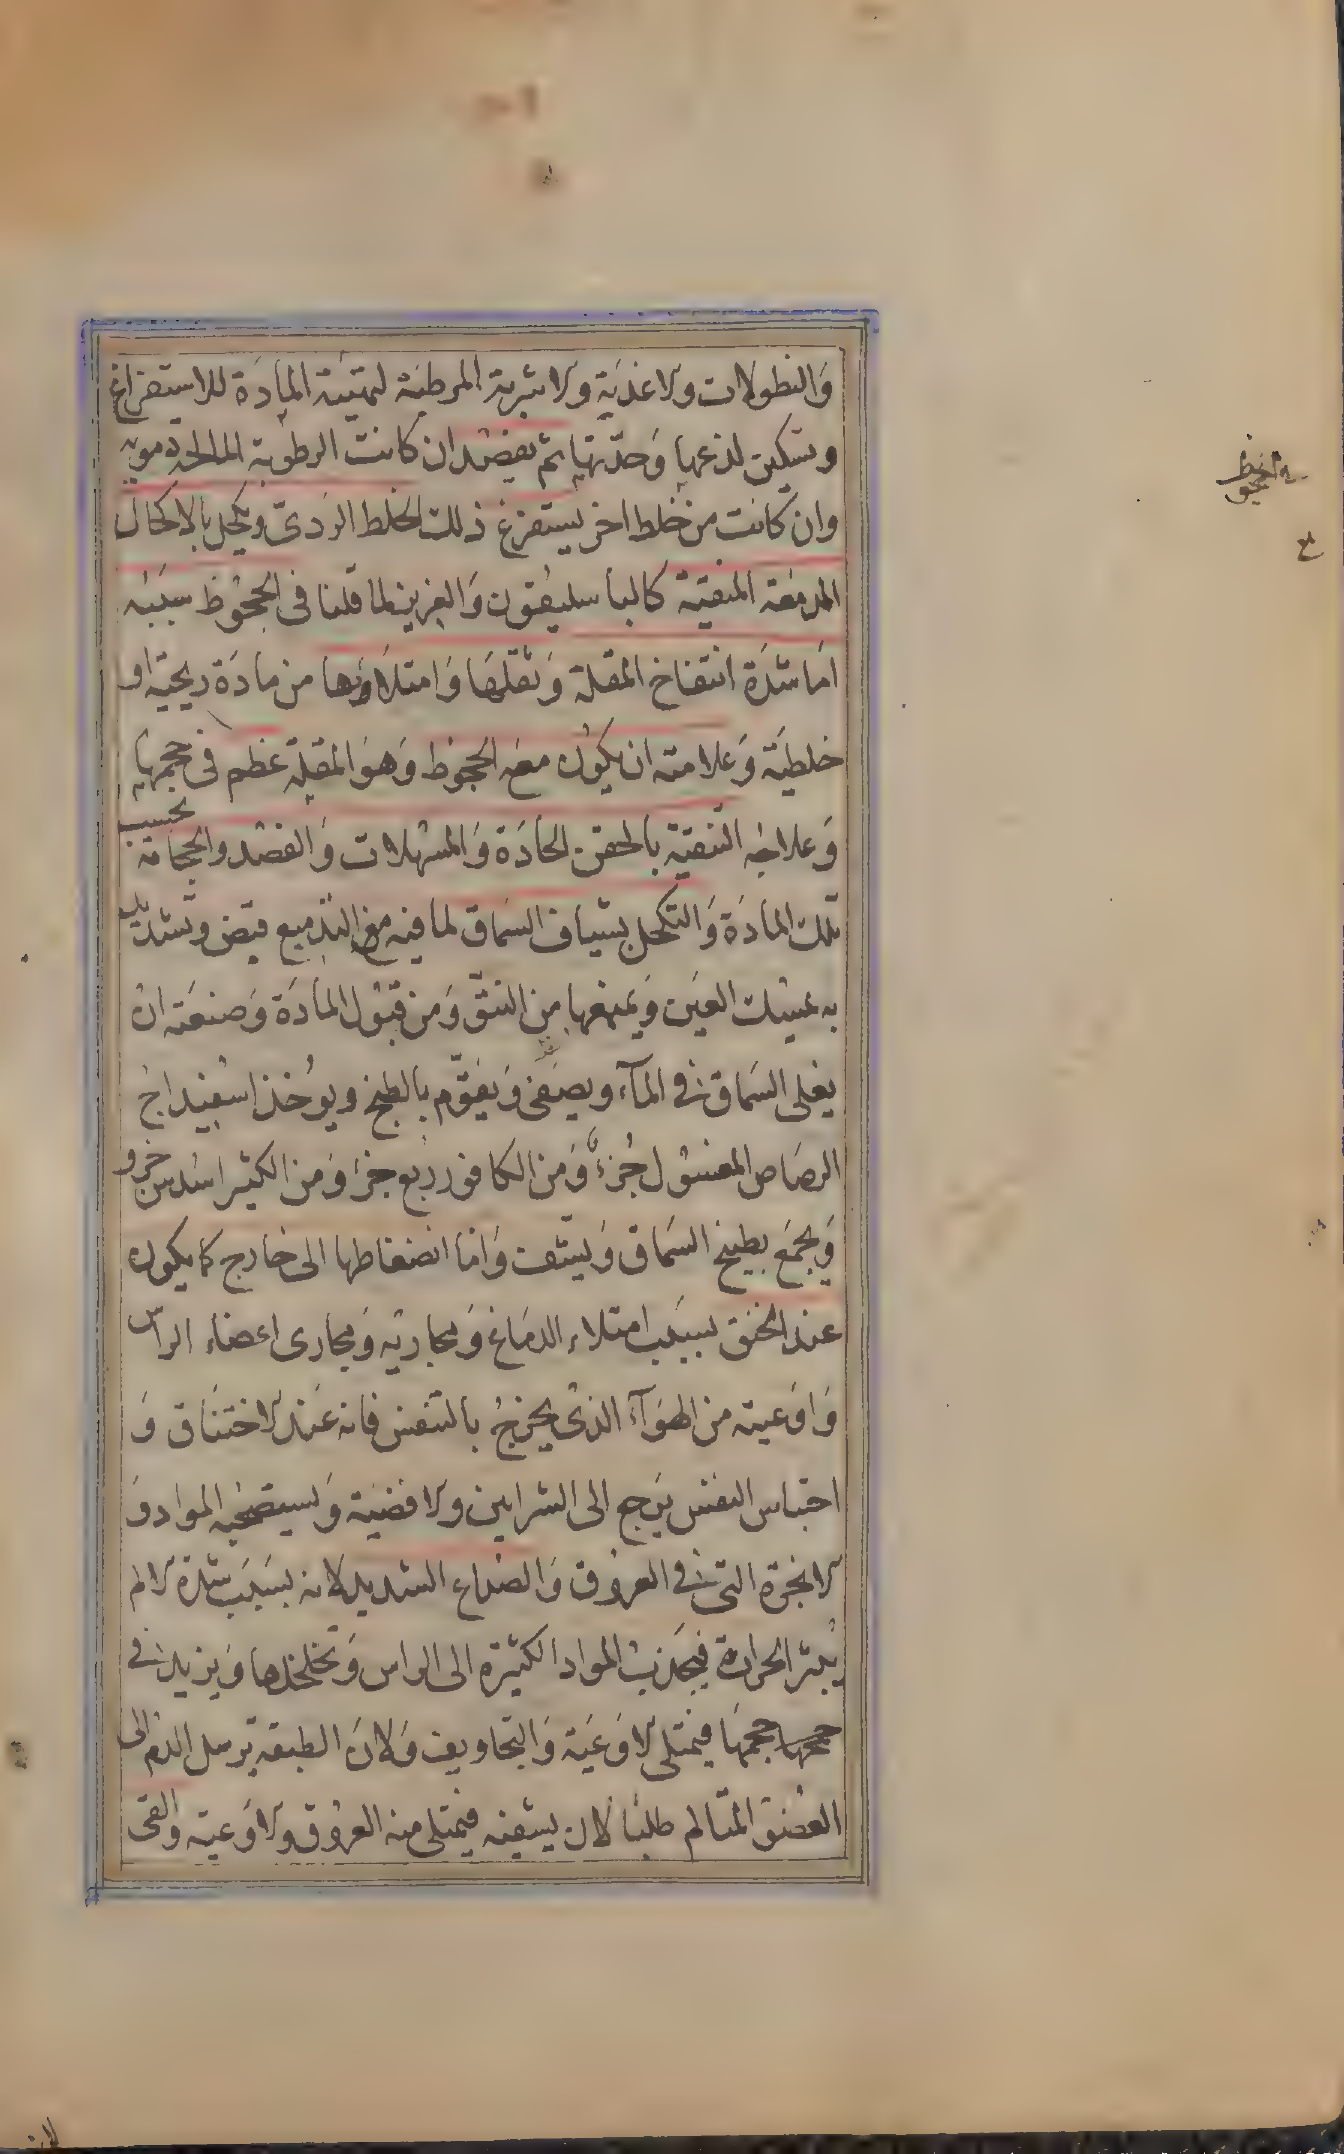 والنطولات والاغذية والاشربة المرطبة لتهيئة المادة للاستفراغ
وتسكين لذعها وحدّتها ثم يفصد ان كانت الرطوبة المالحة دموية
وان كانت من خلط اخر يستفرغ ذلك الخلط الردى ويكحل بالاكحال
المدمعة المنقية كالباسليقون والعزيز لما قلنا فى الجحوظ سببه
اما شدّة انتفاخ المقلة وثقلها وامتلاؤها من مادة ريحية او
خلطية وعلامته ان يكون مع الجحوظ وهو المقلة عظم فى حجمها
وعلاجه التنقية بالحقن الحادة والمسهلات والفصد والحجامة بحسب
تلك المادة والتكحل بشياف السماق لما فيه مع التدميع قبض وتشديد
به يمسك العين ويمنعها من النتوّ ومن قبول المادة وصنعته ان
يغلى السماق فى المآء ويصفى ويقوّم بالطبخ ويؤخذ اسفيداج
الرصاص المغسول جزءً ومن الكافور ربع جزء ومن الكثيرا سدس جزو
ويجمع بطبيخ السماق ويشيف واما انضغاطها الى خارج كما يكون
عند الخنق بسبب امتلاء الدماغ ومجاريه ومجارى اعضاء الراس
واوعيته من الهوآء الذى يخرج بالتنفس فانه عند الاختناق و
احتباس النفس يرجع الى الشرايين والافضية ويستصحبه المواد و
الابخرة التى فى العروق والصداع الشديد لانه بسبب شدة الالم
يثير الحرارة فيجذب المواد الكثيرة الى الراس وتخلخلها ويزيد فى
حجمها حجمها فيمتلى الاوعية والتجاويف ولان الطبيعة ترسل الدم الى
العضو المتالم طلبا لان يشفيه فيمتلى منه العروق والاوعية والقى
الجحوظ